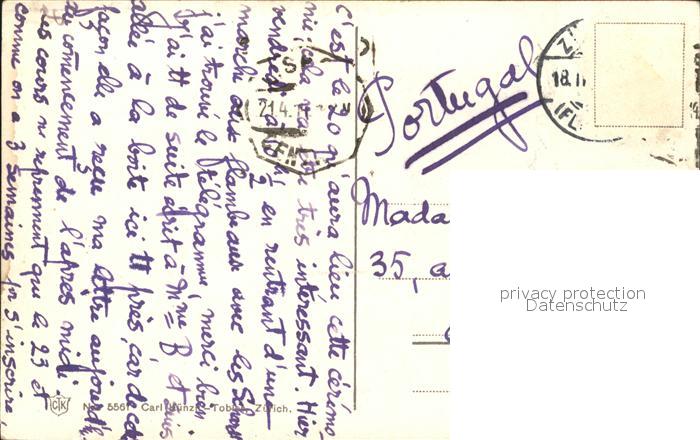 c'est le 20 qu'aura lieu cette cérémo-
nie, cela va être très intéressant. Hier
vendredi à 1/2 en rentrant d'une
marche aux flambeaux avec les
j'ai trouvé le télégramme, merci bien
J'ai tt de suite écrit à Mme B et suis
allée à la boîte ici tt près, car de cette
façon elle a reçu ma lettre aujourd'h.
au commencement de l'après midi.
Les cours ne reprennent que le 23 et
comme on a 3 semaines pr s'inscrire,
Portugal
Mada
35, a
21.4.
18.II
CTK No 556 Carl Künzli-Tobler, Zürich.
privacy protection
Datenschutz